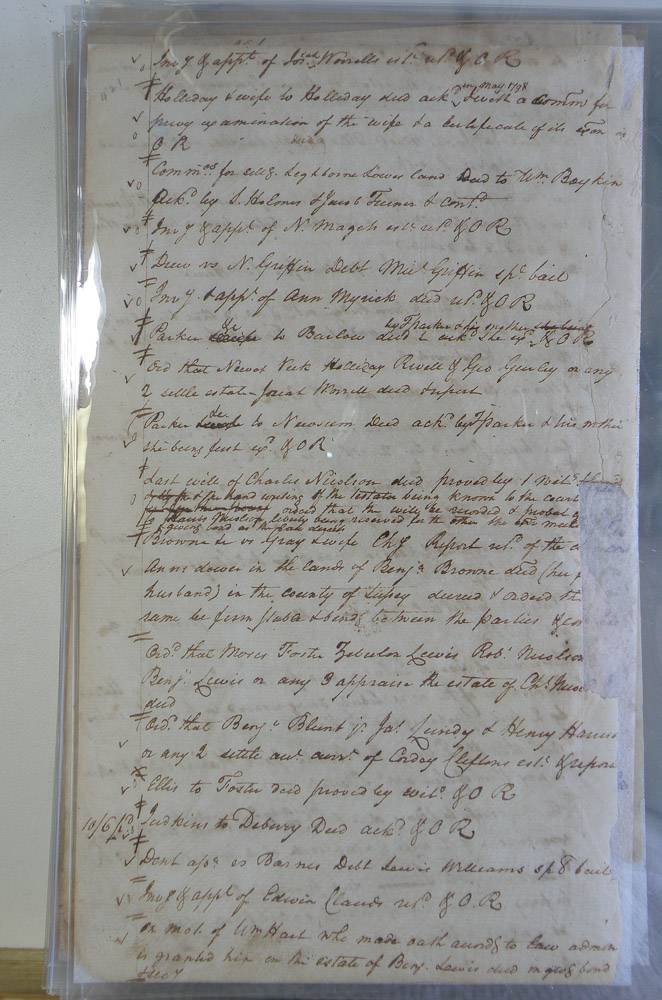 Invy & appt of Josiah Worrells est. ret. & O R
Holliday & wife to Holliday deed ackd Dec May 1798 with a Commn for
privy examination of the wife & a Certificate of its exon
O R
Comms for sellg. Leghborne Lowes land Deed to Wm. Boykin
Ackd by S. Holmes & Jacob Turner & contd
Invy & appt of N. Magets est. ret. & O R
Drew vs N. Griffin Debt Mic. Griffin spl bail
Invy & appt of Ann Myrick decd ret. & O R
by J Parker & his mother she being
Parker &c to Barlow deed ackd she exd & O R
Ord that Newit Vick Holliday Revell & Geo Gurley or any
2 settle estate Josiah Worrell decd & report
Parker &c to Newsum Deed ackd by J Parker & his mother
she being first exd & O R
Last will of Charles Nicolson decd proved by 1 witss
& the hand writing of the testator being known to the court
ordered that the will be recorded & probat
Nicolson liberty being reserved for the other
giving bond as the law directs
Browne &c vs Gray & wife Chy Report ret. of the
Anns dower in the lands of Benja Browne decd (her
husband) in the county of Sussex decreed & ordered th
same be firm stable & bindg between the parties &
Ord. that Moses Foster Zebulon Lewis Rob. Nicolson
Benj. Lewis or any 3 appraise the estate of Chs. Nicol
decd
Ord. that Benja Blunt jr. Jas. Lundy & Henry Harris
or any 2 settle acct currt of Corday Cliftons est. & report
Ellis to Foster deed proved by witss & O R
10/6/pd Judkins to Debury Deed ackd & O R
Dent assee vs Barnes Debt Lewis Williams spl bail
Invy & appt of Edwin Clauds ret. & O. R
On mot. of Wm Hart who made oath accordg to law admon
is granted him on the estate of Benj. Lewis decd in givg bond
& secy